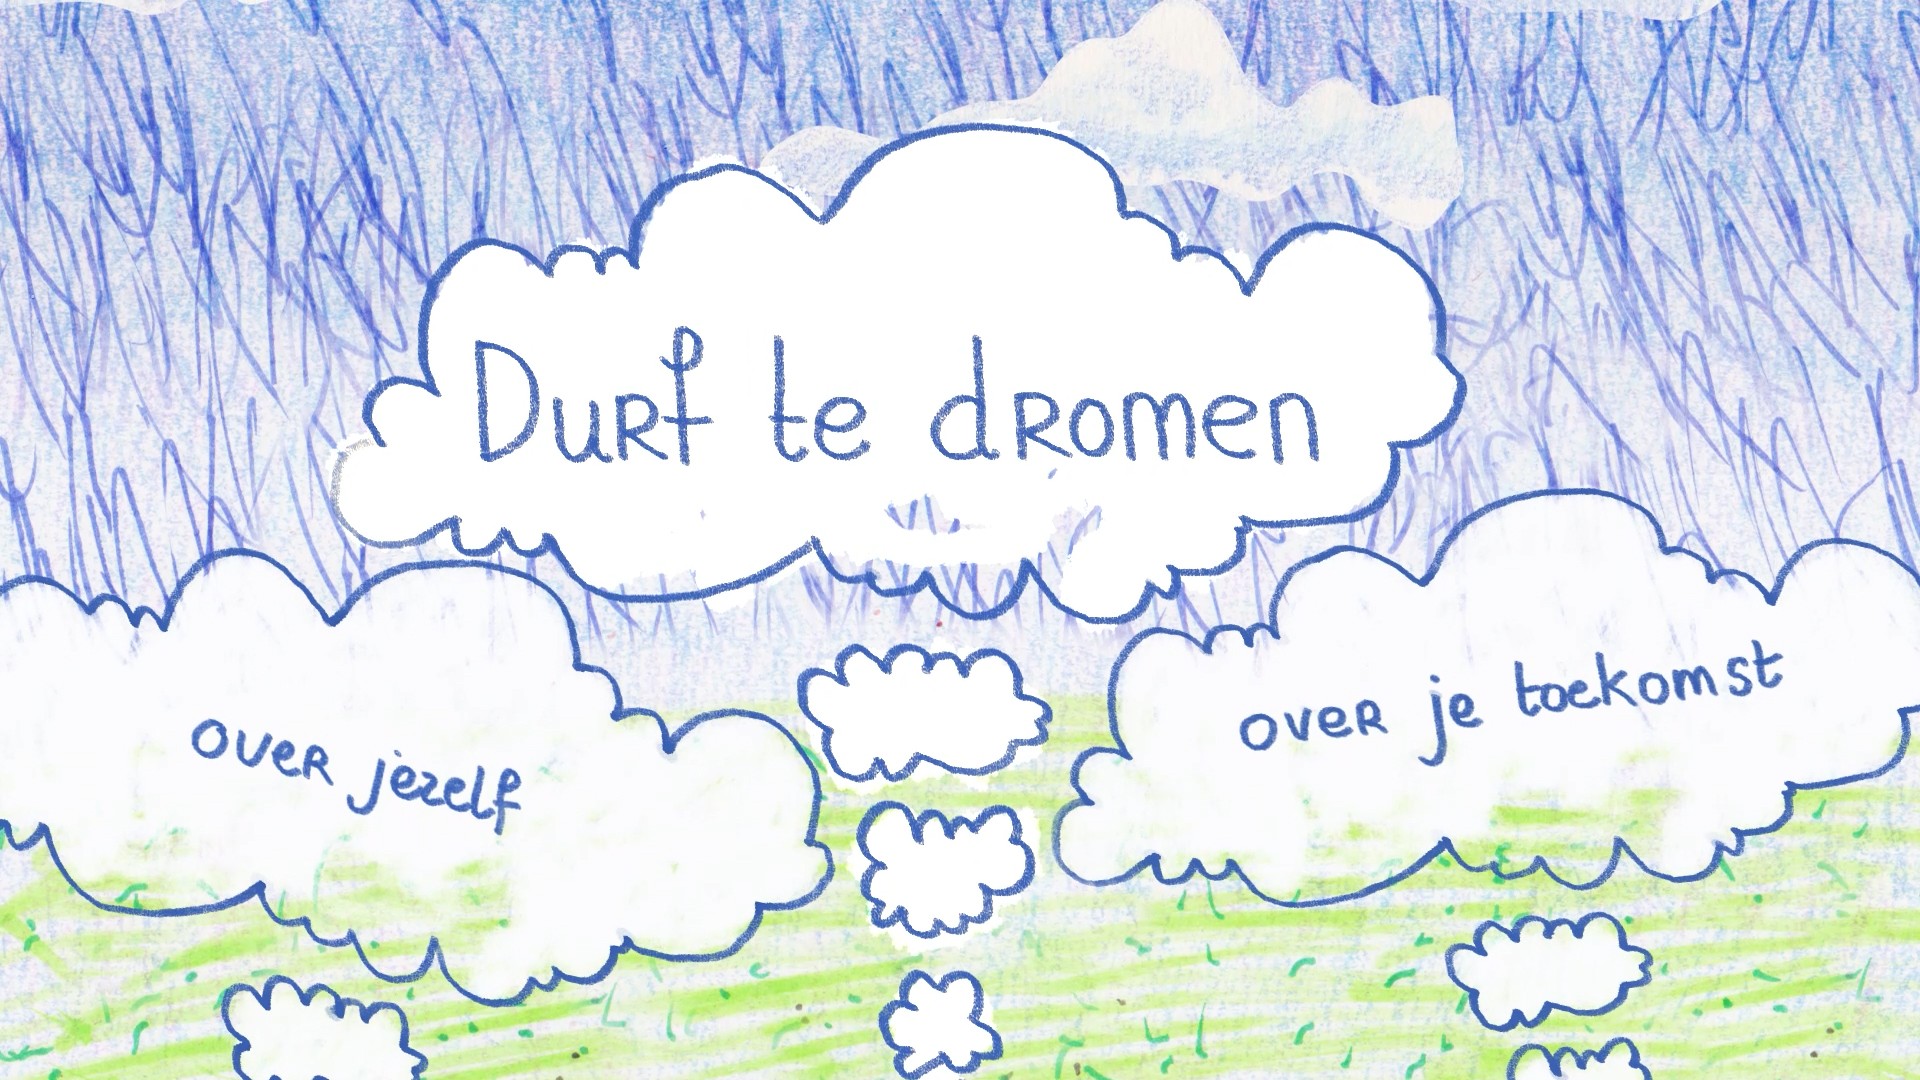 Durf te dromen
over jezelf
over je toekomst